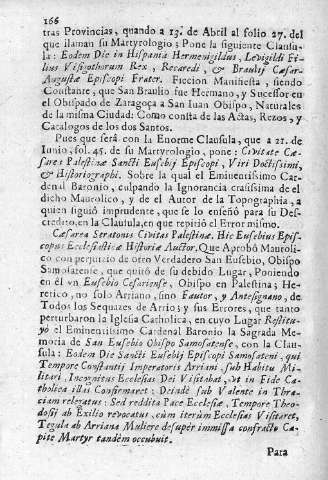 166
tras Provincias, quando a 13. de Abril al folio 27. del
que llaman su Martyrologio; Pone la siguiente Clausu-
la: Eodem Die in Hispania Hermenigildus, Levigildi Fi-
lius Visigothorum Rex, Recaredi, & Braulij Cæsar-
Augustæ Episcopi Frater. Ficcion Manifiesta, siendo
Constante, que San Braulio fue Hermano, y Sucessor en
el Obispado de Zaragoça a San Iuan Obispo, Naturales
de la misma Ciudad: Como consta de las Actas, Rezos, y
Catalogos de los dos Santos.
Pues que será con la Enorme Clausula, que a 21. de
Iunio, fol. 45. de su Martyrologio, pone: Civitate Cæ-
sarea Palestinæ Sancti Eusebij Episcopi, Viri Doctissimi,
& Historiographi. Sobre la qual el Eminentissimo Car-
denal Baronio, culpando la Ignorancia crasissima de el
dicho Maurolico, y de el Autor de la Topographia, a
quien siguiò imprudente, que se lo enseñò para su Des-
credito, en la Clausula, en que repitiò el Error mismo.
Cæsarea Stratonis Civitas Palestinæ, Hic Eusebius Epis-
copus Ecclesiasticæ Historiæ Auctor, Que Aprobò Mauroli-
co con perjuicio de otro Verdadero San Eusebio, Obispo
Samosatense, que quitò de su debido Lugar, Poniendo
en èl vn Eusebio Cesariense, Obispo en Palestina; He-
retico, no solo Arriano, sino Fautor, y Antesignano, de
Todos los Sequazes de Arrio; y sus Errores, que tanto
perturbaron la Iglesia Catholica, en cuyo Lugar Restitu-
yò el Eminentissimo Cardenal Baronio la Sagrada Me-
moria de San Eusebio Obispo Samosatense, con la Clau-
sula: Eodem Die Sancti Eusebij Episcopi Samosateni, qui
Tempore Constantij Imperatoris Arriani, sub Habitu Mi-
litari, Incognitus Ecclesias Dei Visitabat, vt in Fide Ca-
tholica illas Confirmaret: Deindè sub Valente in Thra-
ciam relegatus: Sed reddita Pace Ecclesiæ, Tempore Theo-
dosij ab Exilio revocatus, cùm iterùm Ecclesias Visitaret,
Tegula ab Arriana Muliere desupèr immissa confracto Ca-
pite Martyr tandèm occubuit.
Para